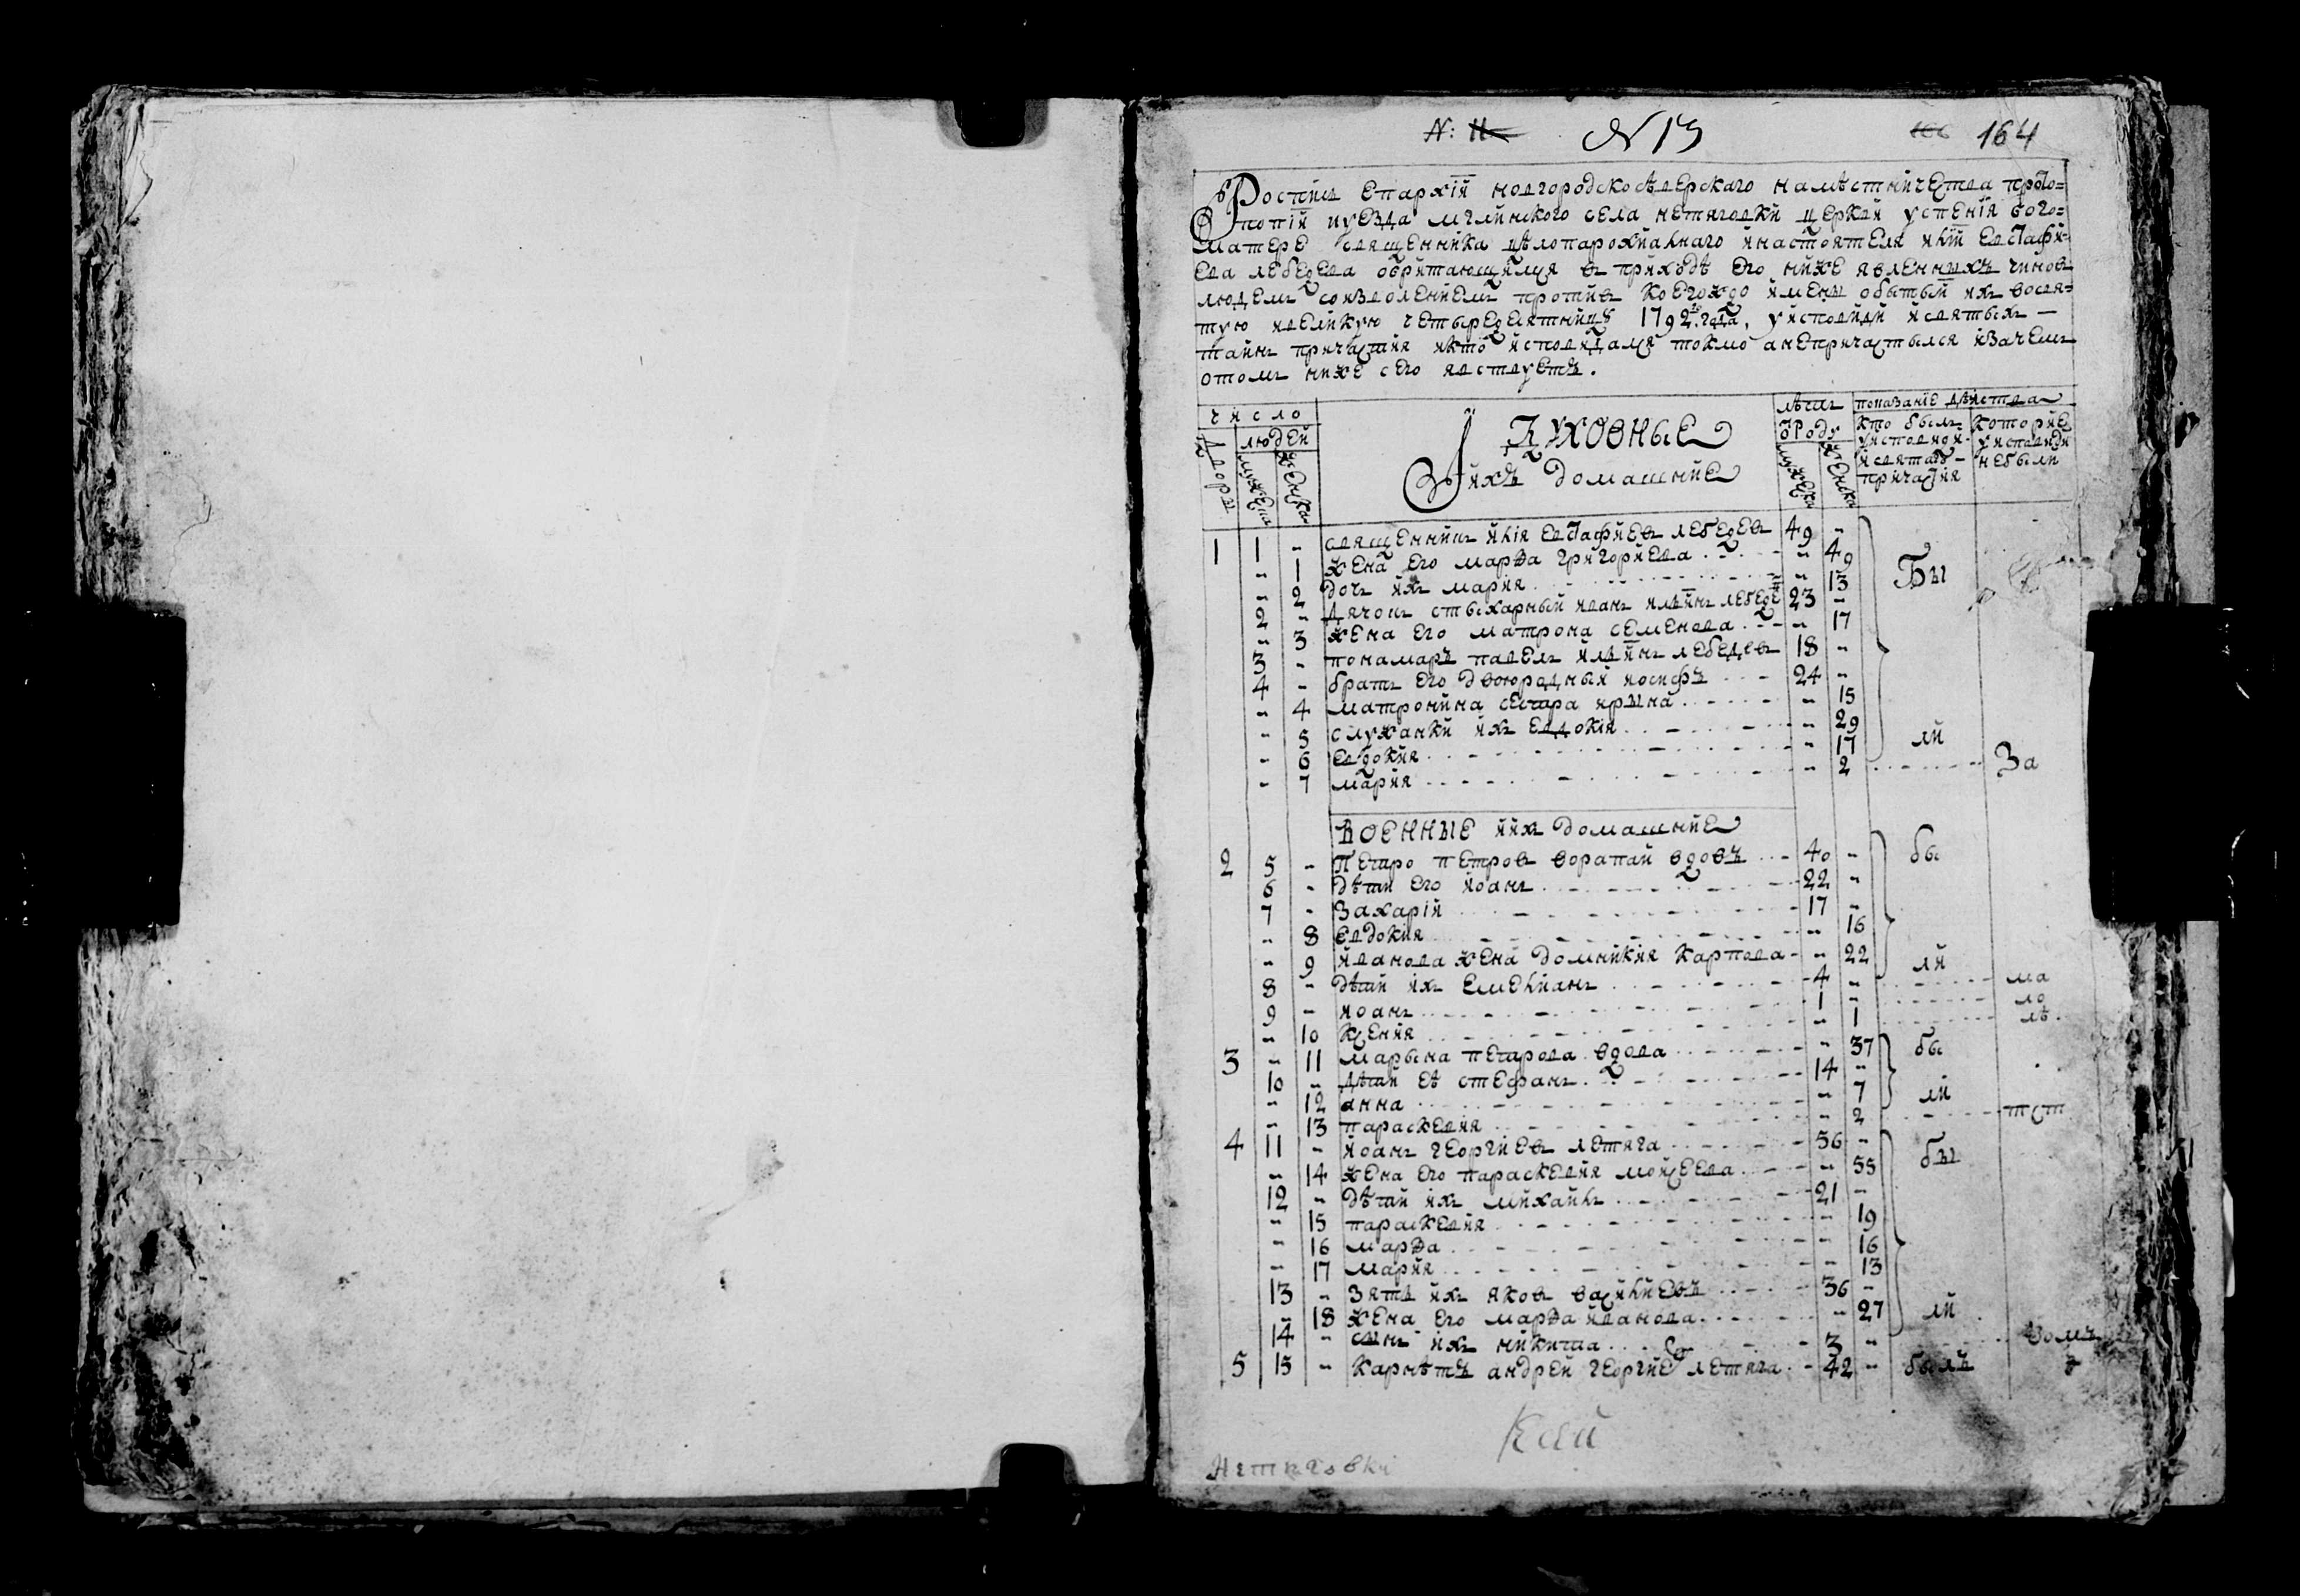 N: 11 N 13 164
Роспись епархїй новгородскосѣверскаго намѣстничества прото=
попїй иуезда мглинского села нетяговки церкви успенїя бого=
матере священника цѣлопарохиалнаго инастоятеля илїй евстафи=
ева лебедева обритающимся въ приходѣ его ниже явленныхъ чиновъ
людемъ соизволениемъ противъ коегождо имены обытый ихъ восвя=
тую ивеликую четыредесятницу 1792 года, уисповиди исвятыхъ —
таинъ причастия икто исповидался токмо анепричастылся изачемъ
отомъ ниже сего явствуетъ.
число
дворы
людей
мужеска
женска
Духовные
иихъ домашние
лѣтъ
ѿроду
мужеска
женска
показание дѣйства
кто былъ уисповиди исвятаго причастия
которие уисповиди небыли
1 1 - священникъ илїя евстафиевъ лебедевъ 49 -
- 1 жена его марѳа григориева - 49
- 2 дочъ ихъ мария - 13
2 - дячокъ стыхарный иванъ ильинъ лебедевъ 23 -
- 3 жена его матрона семенова - 17
3 - понамаръ павелъ ильинъ лебедевъ 18 -
4 - братъ его двоюродный иосифъ 24 -
- 4 матронина сестра ирына - 15
- 5 служанки ихъ евдокїя - 29
- 6 евдокия - 17
- 7 мария - 2
Бы
ли
За
Военные иихъ домашние
2 5 - Петро петровъ ворапай вдовъ 40 -
6 - дѣти его иоанъ 22 -
7 - Захарїй 17 -
- 8 евдокия - 16
- 9 иванова жена домникия карпова - 22
8 - дѣти ихъ емелианъ 4 -
9 - иоанъ 1 -
- 10 ксения - 1
бы
ли
ма
ло
лѣ.
3 - 11 марына петрова вдова - 37
10 - дѣти еѣ стефанъ 14 -
- 12 анна - 7
- 13 параскевия - 2
бы
ли
тст
4 11 - иоанъ георгиевъ летяга 56 -
- 14 жена его параскевия моисеева - 55
12 - дѣти ихъ михаилъ 21 -
- 15 параскевия - 19
- 16 марѳа - 16
- 17 мария - 13
13 - зять ихъ яковъ василиевъ 36 -
- 18 жена его марѳа иванова - 27
14 - сынъ ихъ никита 3 -
бы
ли
вомъ
5 15 - Карнѣтъ андрей георгиевъ летяга 42 - былъ
Нетяговки